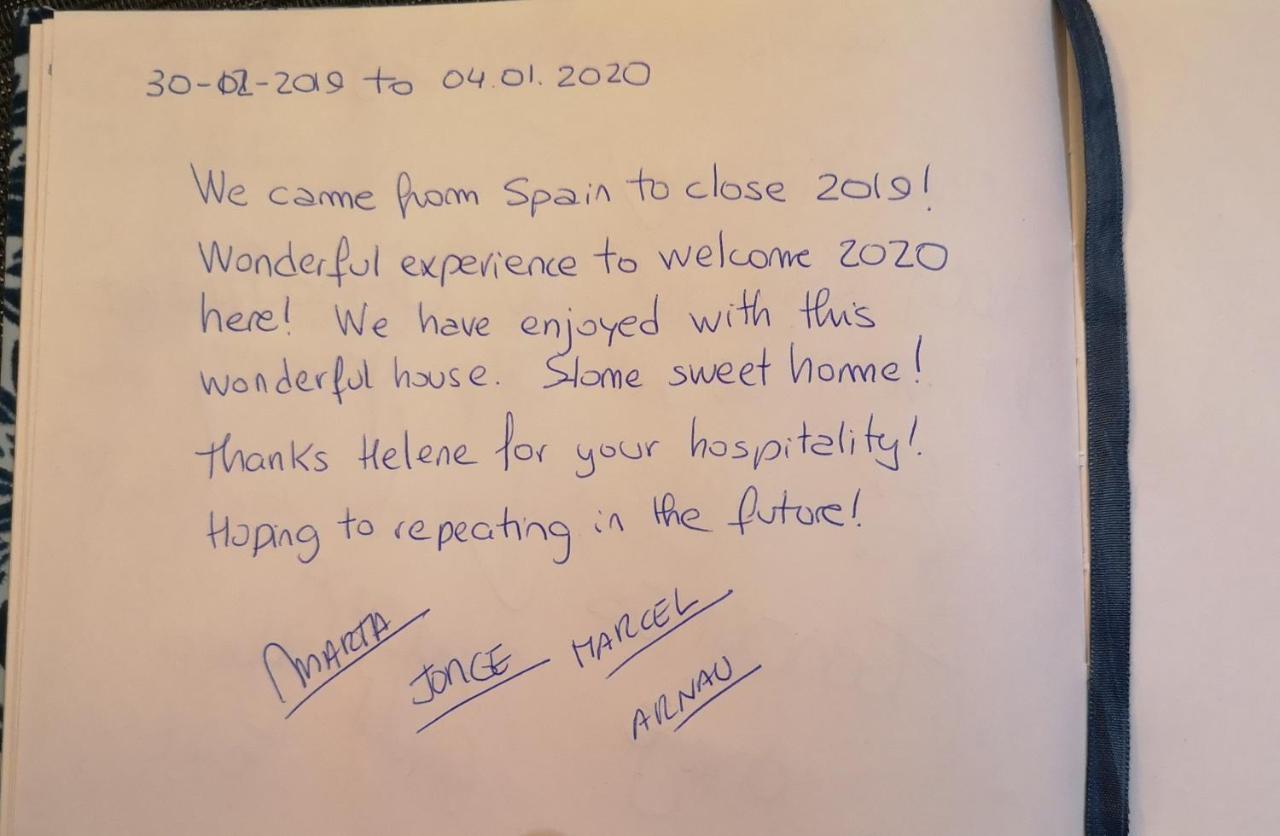 30-12-2019 to 04.01.2020
We came from Spain to close 2019!
Wonderful experience to welcome 2020
here! We have enjoyed with this
wonderful house. Home sweet home!
Thanks Helene for your hospitality!
Hoping to repeating in the future!
MARTA JORGE MARCEL
ARNAU